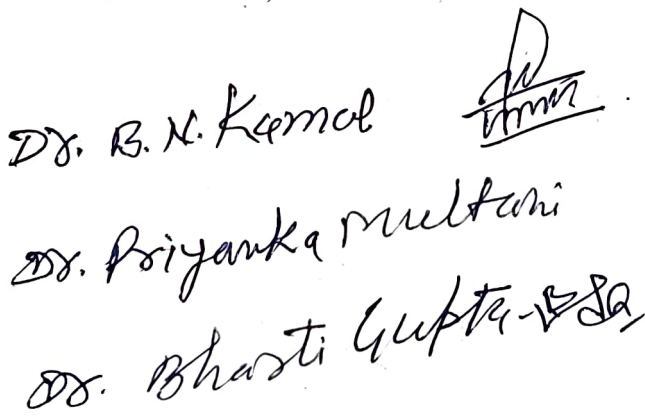 Dr. B. N. Kamal
Dr. Priyanka Multani
Dr. Bharti Gupta